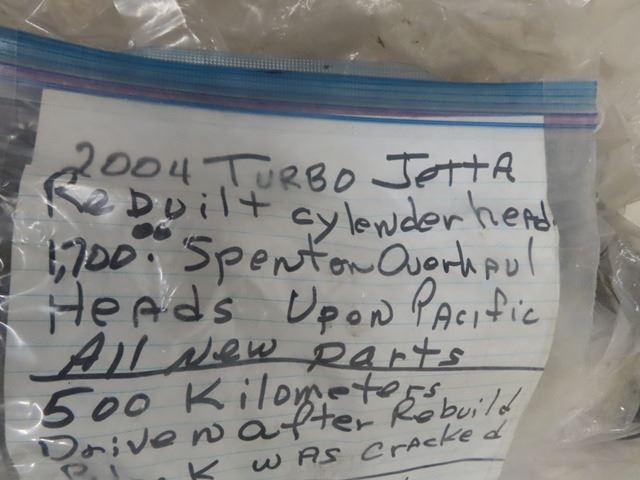 2004 TURBO JettA
ReBuilt cylenderhead
1,700.00 Spent on Overhaul
HeADS UPON PAcific
All New parts
500 Kilometers
Driven after Rebuild
WAS CrAcked